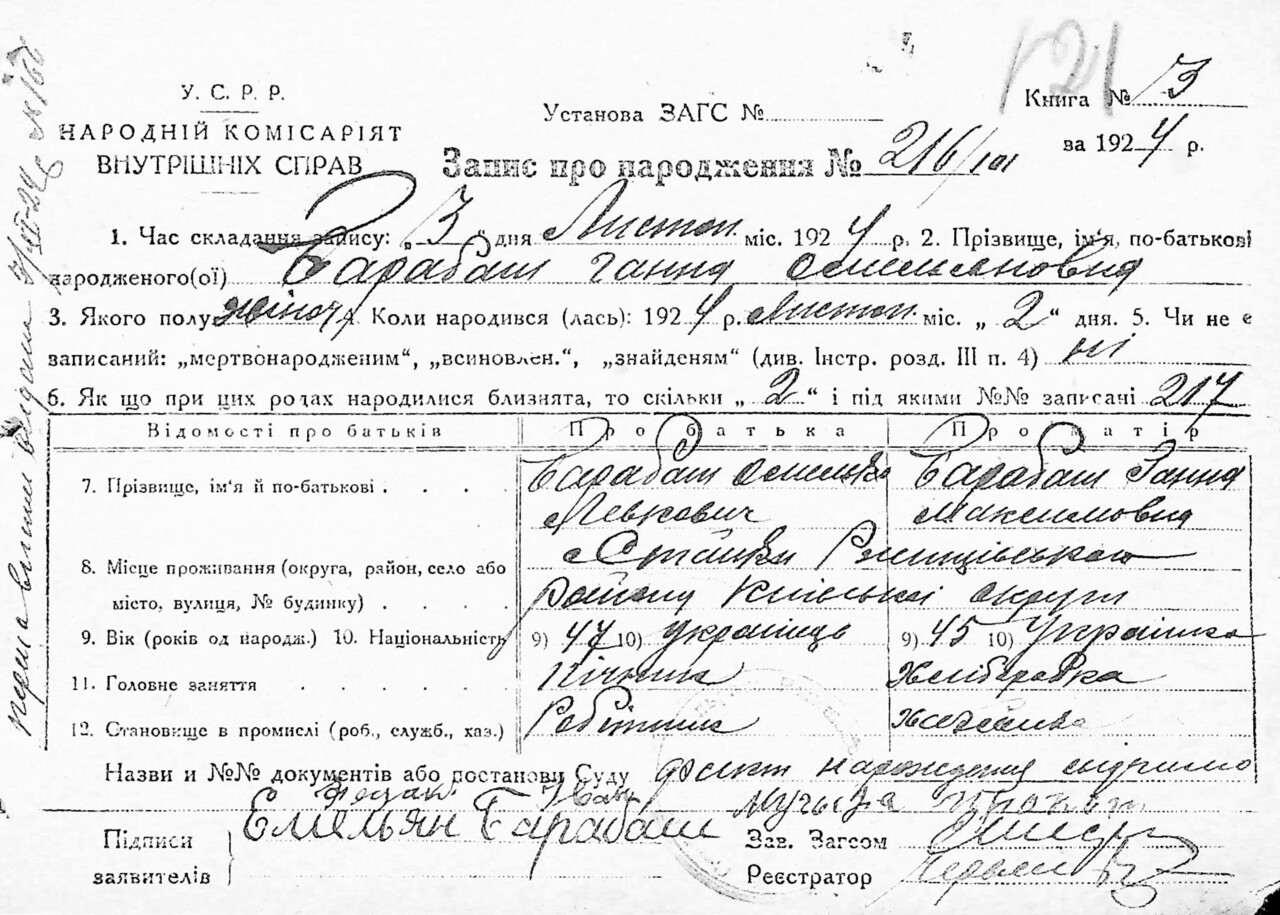 121
У. С. Р. Р.
НАРОДНІЙ КОМІСАРІЯТ
ВНУТРІШНІХ СПРАВ
Установа ЗАГС №
Книга № 3
за 1924 р.
Запис про народження № 216/101
1. Час складання запису: „ 3 “ дня Листоп міс. 1924 р. 2. Прізвище, ім'я, по-батькові
народженого(ої) Барабаш Ганна Омеляновна
3. Якого полу жіноч Коли народився (лась): 1924 р. Листоп міс. „ 2 “ дня. 5. Чи не є
записаний: „мертвонародженим“, „всиновлен.“, „знайденям“ (див. Інстр. розд. III п. 4) ні
6. Як що при цих родах народилися близнята, то скільки „ 2 “ і під якими №№ записані 217
Відомості про батьків Про батька Про матір
7. Прізвище, ім'я й по-батькові . . . . Барабаш Омелько Барабаш Ганна
Левкович Максимовна
8. Місце проживання (округа, район, село або Стайки
місто, вулиця, № будинку) . . . . району Київської округи
9. Вік (років од народж.) 10. Національність 9) 47 10) Українець 9) 45 10) Українка
11. Головне заняття . . . . . Пічник Хліборобка
12. Становище в промислі (роб., служб., хаз.) Робітник Хазяйка
Назви и №№ документів або постанови Суду факт нарождения
Підписи
заявителів
Емельян Барабаш
Зав. Загсом
Реєстратор